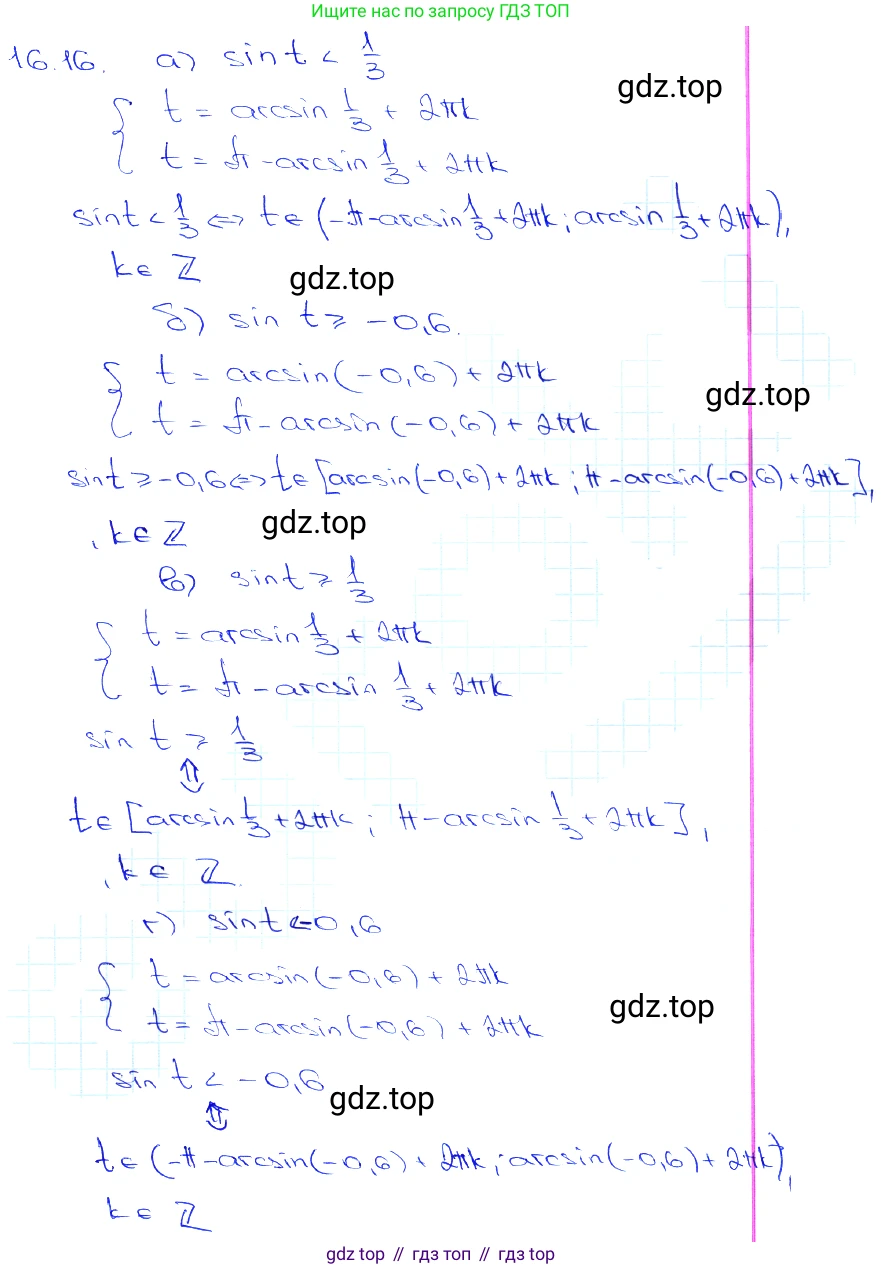 Ищите нас по запросу ГДЗ ТОП
16.16. а) sin t < 1/3
gdz.top
{ t = arcsin 1/3 + 2πk
t = π - arcsin 1/3 + 2πk
sin t < 1/3 <=> t ∈ (-π - arcsin 1/3 + 2πk; arcsin 1/3 + 2πk),
k ∈ ℤ
gdz.top
б) sin t ≥ -0,6.
{ t = arcsin(-0,6) + 2πk
gdz.top
t = π - arcsin(-0,6) + 2πk
sin t ≥ -0,6 <=> t ∈ [arcsin(-0,6) + 2πk; π - arcsin(-0,6) + 2πk],
, k ∈ ℤ
gdz.top
в) sin t ≥ 1/3
{ t = arcsin 1/3 + 2πk
t = π - arcsin 1/3 + 2πk
sin t ≥ 1/3
⇕
t ∈ [arcsin 1/3 + 2πk; π - arcsin 1/3 + 2πk],
, k ∈ ℤ.
г) sin t < -0,6
{ t = arcsin(-0,6) + 2πk
gdz.top
t = π - arcsin(-0,6) + 2πk
sin t < -0,6
gdz.top
⇕
t ∈ (-π - arcsin(-0,6) + 2πk; arcsin(-0,6) + 2πk),
k ∈ ℤ
gdz top // гдз топ // gdz top